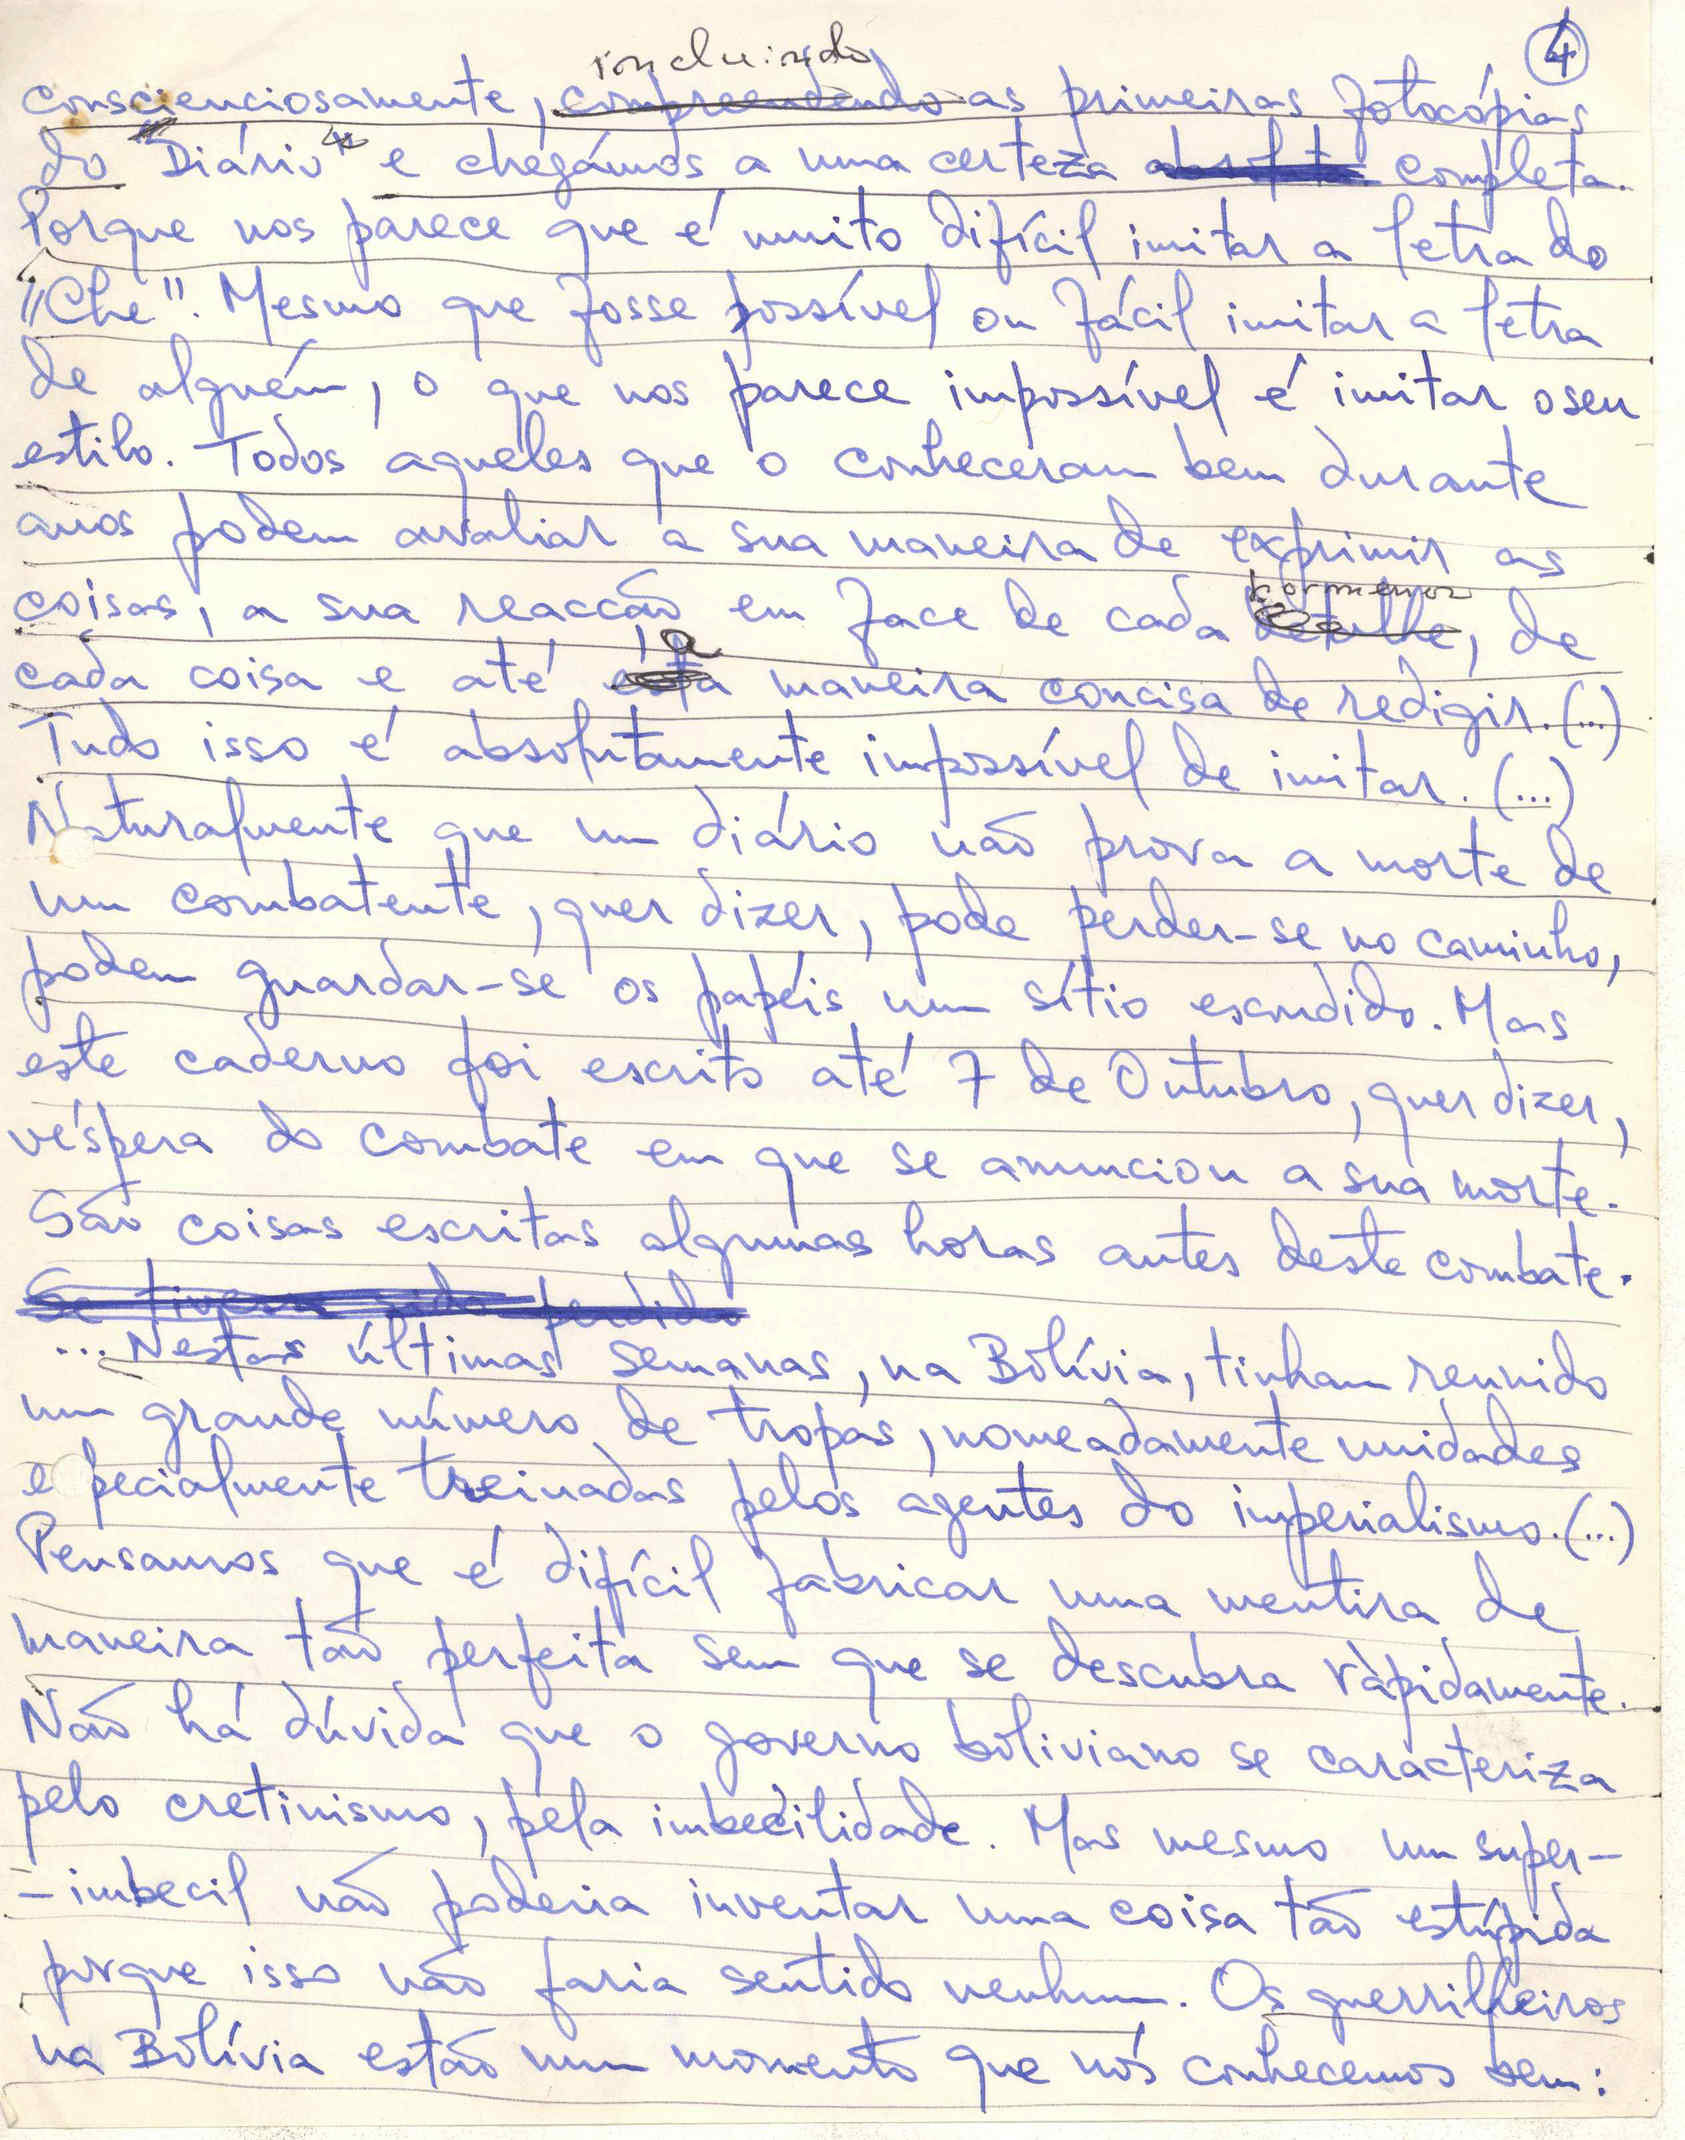 4
incluindo
conscienciosamente, compreendendo as primeiras fotocópias
do "Diário" e chegámos a uma certeza completa.
Porque nos parece que é muito difícil imitar a letra do
"Che". Mesmo que fosse possível ou fácil imitar a letra
de alguém, o que nos parece impossível é imitar o seu
estilo. Todos aqueles que o conheceram bem durante
anos podem avaliar a sua maneira de exprimir as
pormenor
coisas, a sua reacção em face de cada detalhe, de
a
cada coisa e até esta maneira concisa de redigir. (...)
Tudo isso é absolutamente impossível de imitar. (...)
Naturalmente que um diário não prova a morte de
um combatente, quer dizer, pode perder-se no caminho,
podem guardar-se os papéis num sítio escondido. Mas
este caderno foi escrito até 7 de Outubro, quer dizer,
véspera do combate em que se anunciou a sua morte.
São coisas escritas algumas horas antes deste combate.
Se tivesse sido perdido
... Nestas últimas semanas, na Bolívia, tinham reunido
um grande número de tropas, nomeadamente unidades
e pecialmente treinadas pelos agentes do imperialismo. (...)
Pensamos que é difícil fabricar uma mentira de
maneira tão perfeita sem que se descubra ràpidamente.
Não há dúvida que o governo boliviano se caracteriza
pelo cretinismo, pela imbecilidade. Mas mesmo um super-
-imbecil não poderia inventar uma coisa tão estúpida
porque isso não faria sentido nenhum. Os guerrilheiros
na Bolívia estão num momento que nós conhecemos bem: